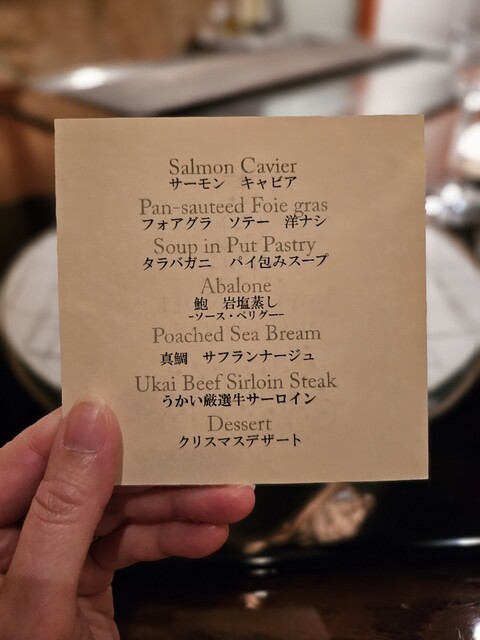 Salmon Cavier
サーモン　キャビア
Pan-sauteed Foie gras
フォアグラ　ソテー　洋ナシ
Soup in Put Pastry
タラバガニ　パイ包みスープ
Abalone
鮑　岩塩蒸し
-ソース・ペリグー-
Poached Sea Bream
真鯛　サフランナージュ
Ukai Beef Sirloin Steak
うかい厳選牛サーロイン
Dessert
クリスマスデザート